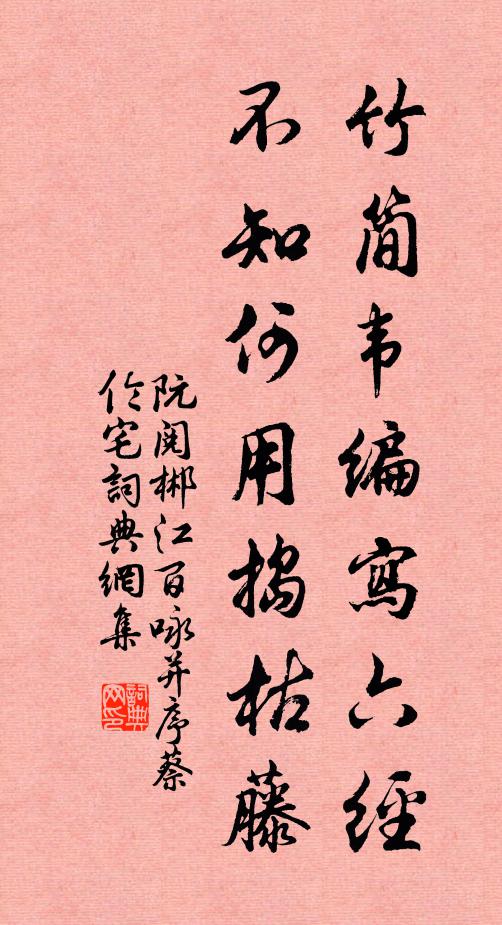 竹简韦编寫六經
不知何用搗枯藤
阮閱郴江百咏并序蔡
伦宅詞典網集
詞典网印